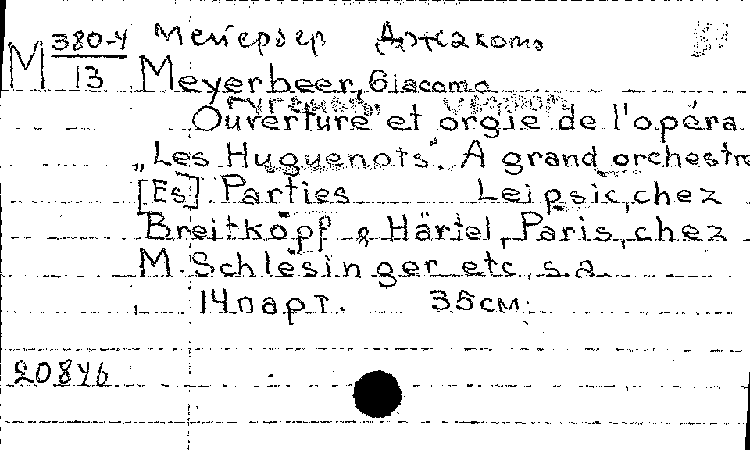 M 380-4 Мейербер Джакомо
13 Meyerbeer, Giacomo
Ouverture et orgie de l'opéra
„Les Huguenots". A grand orchestre
[Es] Parties Leipsic, chez
Breitkopf & Härtel, Paris, chez
M. Schlesinger etc, s.a.
14 парт. 35 см.
20846